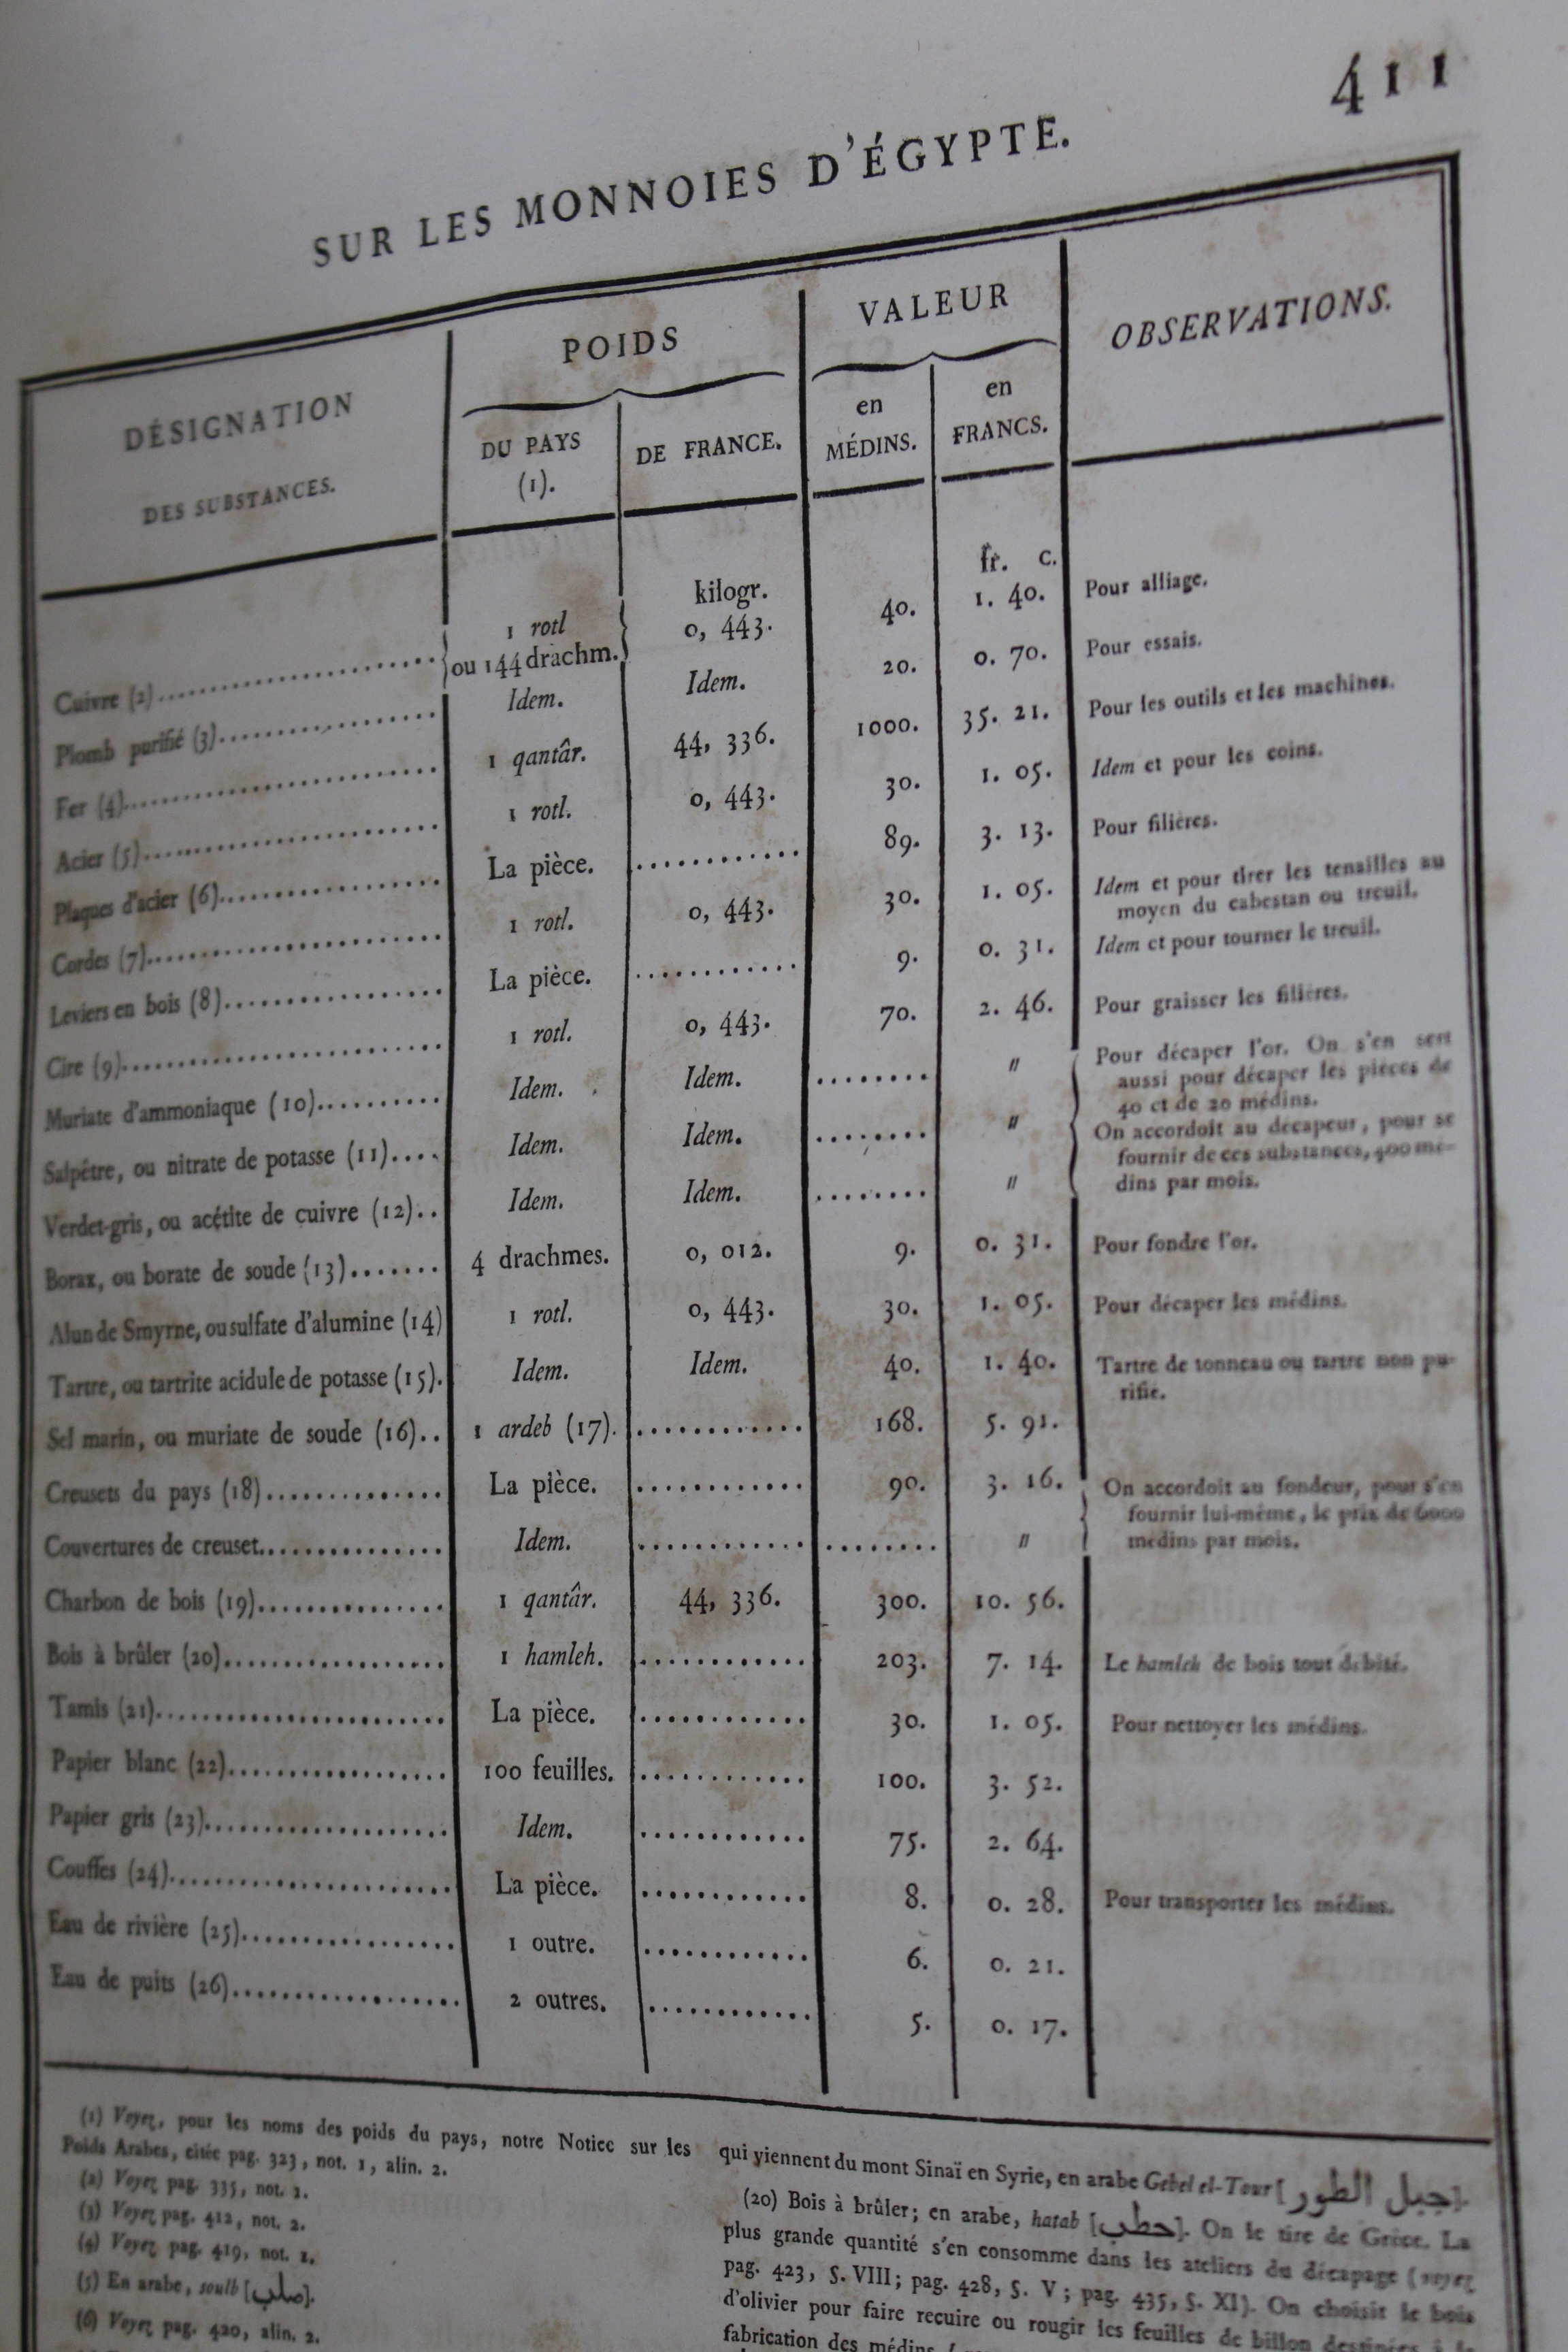 411
SUR LES MONNOIES D'ÉGYPTE.
DÉSIGNATION
DES SUBSTANCES.
POIDS
DU PAYS
(1).
DE FRANCE.
VALEUR
en
MÉDINS.
en
FRANCS.
OBSERVATIONS.
kilogr.
fr. c.
Cuivre (2)........................ { 1 rotl ou 144 drachm. } 0, 443. 40. 1. 40. Pour alliage.
Plomb purifié (3)................... Idem. Idem. 20. 0. 70. Pour essais.
Fer (4)............................ 1 qantâr. 44, 336. 1000. 35. 21. Pour les outils et les machines.
Acier (5).......................... 1 rotl. 0, 443. 30. 1. 05. Idem et pour les coins.
Plaques d'acier (6)................. La pièce. ............ 89. 3. 13. Pour filières.
Cordes (7)......................... 1 rotl. 0, 443. 30. 1. 05. Idem et pour tirer les tenailles au
moyen du cabestan ou treuil.
Leviers en bois (8)................. La pièce. ............ 9. 0. 31. Idem et pour tourner le treuil.
Cire (9)........................... 1 rotl. 0, 443. 70. 2. 46. Pour graisser les filières.
Muriate d'ammoniaque (10).......... Idem. Idem. ........ " Pour décaper l'or. On s'en sert
aussi pour décaper les pièces de
40 et de 20 médins.
Salpêtre, ou nitrate de potasse (11).... Idem. Idem. ........ " On accordoit au décapeur, pour se
fournir de ces substances, 400 mé-
dins par mois.
Verdet-gris, ou acétite de cuivre (12).. Idem. Idem. ........ "
Borax, ou borate de soude (13)....... 4 drachmes. 0, 012. 9. 0. 31. Pour fondre l'or.
Alun de Smyrne, ou sulfate d'alumine (14) 1 rotl. 0, 443. 30. 1. 05. Pour décaper les médins.
Tartre, ou tartrite acidule de potasse (15). Idem. Idem. 40. 1. 40. Tartre de tonneau ou tartre non pu-
rifié.
Sel marin, ou muriate de soude (16).. 1 ardeb (17). ............ 168. 5. 91.
Creusets du pays (18)............... La pièce. ............ 90. 3. 16. On accordoit au fondeur, pour s'en
fournir lui-même, le prix de 6000
médins par mois.
Couvertures de creuset............... Idem. ............ ........ "
Charbon de bois (19)............... 1 qantâr. 44, 336. 300. 10. 56.
Bois à brûler (20).................. 1 hamleh. ............ 203. 7. 14. Le hamleh de bois tout débité.
Tamis (21)........................ La pièce. ............ 30. 1. 05. Pour nettoyer les médins.
Papier blanc (22).................. 100 feuilles. ............ 100. 3. 52.
Papier gris (23).................... Idem. ............ 75. 2. 64.
Couffes (24)....................... La pièce. ............ 8. 0. 28. Pour transporter les médins.
Eau de rivière (25)................. 1 outre. ............ 6. 0. 21.
Eau de puits (26).................. 2 outres. ............ 5. 0. 17.
(1) Voyez, pour les noms des poids du pays, notre Notice sur les
Poids Arabes, citée pag. 323, not. 1, alin. 2.
(2) Voyez pag. 335, not. 1.
(3) Voyez pag. 412, not. 2.
(4) Voyez pag. 419, not. 1.
(5) En arabe, soulb [صلب].
(6) Voyez pag. 420, alin. 2.
qui viennent du mont Sinaï en Syrie, en arabe Gebel el-Tour [جبل الطور].
(20) Bois à brûler; en arabe, hatab [حطب]. On le tire de Grèce. La
plus grande quantité s'en consomme dans les ateliers du décapage (voyez
pag. 423, §. VIII; pag. 428, §. V; pag. 435, §. XI). On choisit le bois
d'olivier pour faire recuire ou rougir les feuilles de billon destinées
fabrication des médins